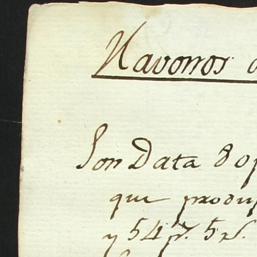 Navorros
Son Data 8 op
que produ
y 54 p. 5 r.